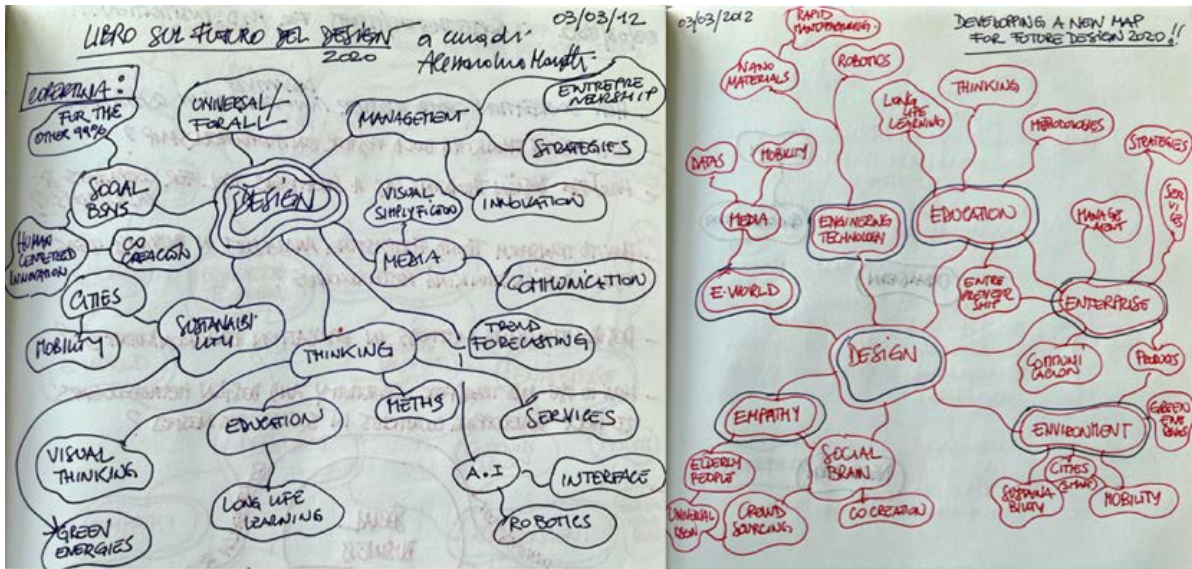 03/03/12
LIBRO SUL FUTURO DEL DESIGN
2020
a cura di
COPERTINA:
FUR THE
OTHER 99%
UNIVERSAL
FOR ALL
MANAGEMENT
ENTREPRE
NEURSHIP
STRATEGIES
INNOVATION
SOCIAL
BSNS
DESIGN
VISUAL
SIMPLYFICTION
MEDIA
COMMUNICATION
HUMAN
CENTERED
INNOVATION
CO
CREACION
CITIES
MOBILITY
SUSTANAIBI
LITY
THINKING
TREND
FORECASTING
METHS
SERVICES
EDUCATION
VISUAL
THINKING
LONG LIFE
LEARNING
A.I
INTERFACE
ROBOTICS
GREEN
ENERGIES
03/03/2012
DEVELOPPING A NEW MAP
FOR FUTURE DESIGN 2020!!
RAPID
MANUFACTURING
NANO
MATERIALS
ROBOTICS
LONG
LIFE
LEARNING
THINKING
METODOLOGIES
STRATEGIES
DATAS
MOBILITY
MEDIA
ENGINEERING
TECHNOLOGY
EDUCATION
MANAGE
MENT
SER
VI
CES
E-WORLD
ENTRE
PRENEUR
SHIP
ENTERPRISE
DESIGN
COMMUNI
CACION
PRODUCTS
EMPATHY
SOCIAL
BRAIN
ENVIRONMENT
GREEN
ENE
RGIES
ELDERLY
PEOPLE
CITIES
(SMART)
SUSTAINA
BILITY
MOBILITY
UNIVERSAL
DSGN
CROWD
SOURCING
CO CREATION